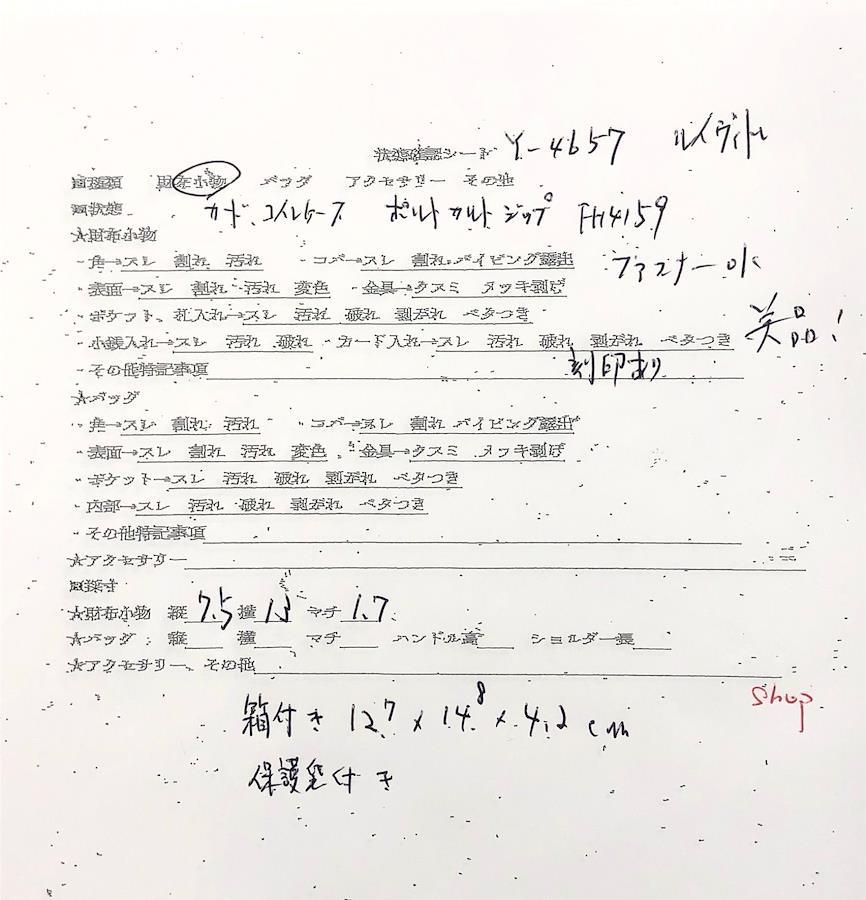 状態確認シート Y-4657 ルイヴィトン
■種類 財布小物 バッグ アクセサリー その他
■状態 カード、コインケース ポルト カルト ジップ FH4159
★財布小物
・角→スレ 割れ 汚れ ・コバ→スレ 割れ パイピング露出 ファスナーOK
・表面→スレ 割れ 汚れ 変色 ・金具→クスミ メッキ剥げ
・ポケット、札入れ→スレ 汚れ 破れ 剥がれ ベタつき
・小銭入れ→スレ 汚れ 破れ ・カード入れ→スレ 汚れ 破れ 剥がれ ベタつき 美品!
・その他特記事項 刻印あり
★バッグ
・角→スレ 割れ 汚れ ・コバ→スレ 割れ パイピング露出
・表面→スレ 割れ 汚れ 変色 ・金具→クスミ メッキ剥げ
・ポケット→スレ 汚れ 破れ 剥がれ ベタつき
・内部→スレ 汚れ 破れ 剥がれ ベタつき
・その他特記事項
★アクセサリー
■採寸
★財布小物 縦 7.5 横 マチ 1.7
★バッグ 縦 横 マチ ハンドル高 ショルダー長
★アクセサリー、その他
shop
箱付き 12.7 × 14.8 × 4.2 cm
保護袋付き